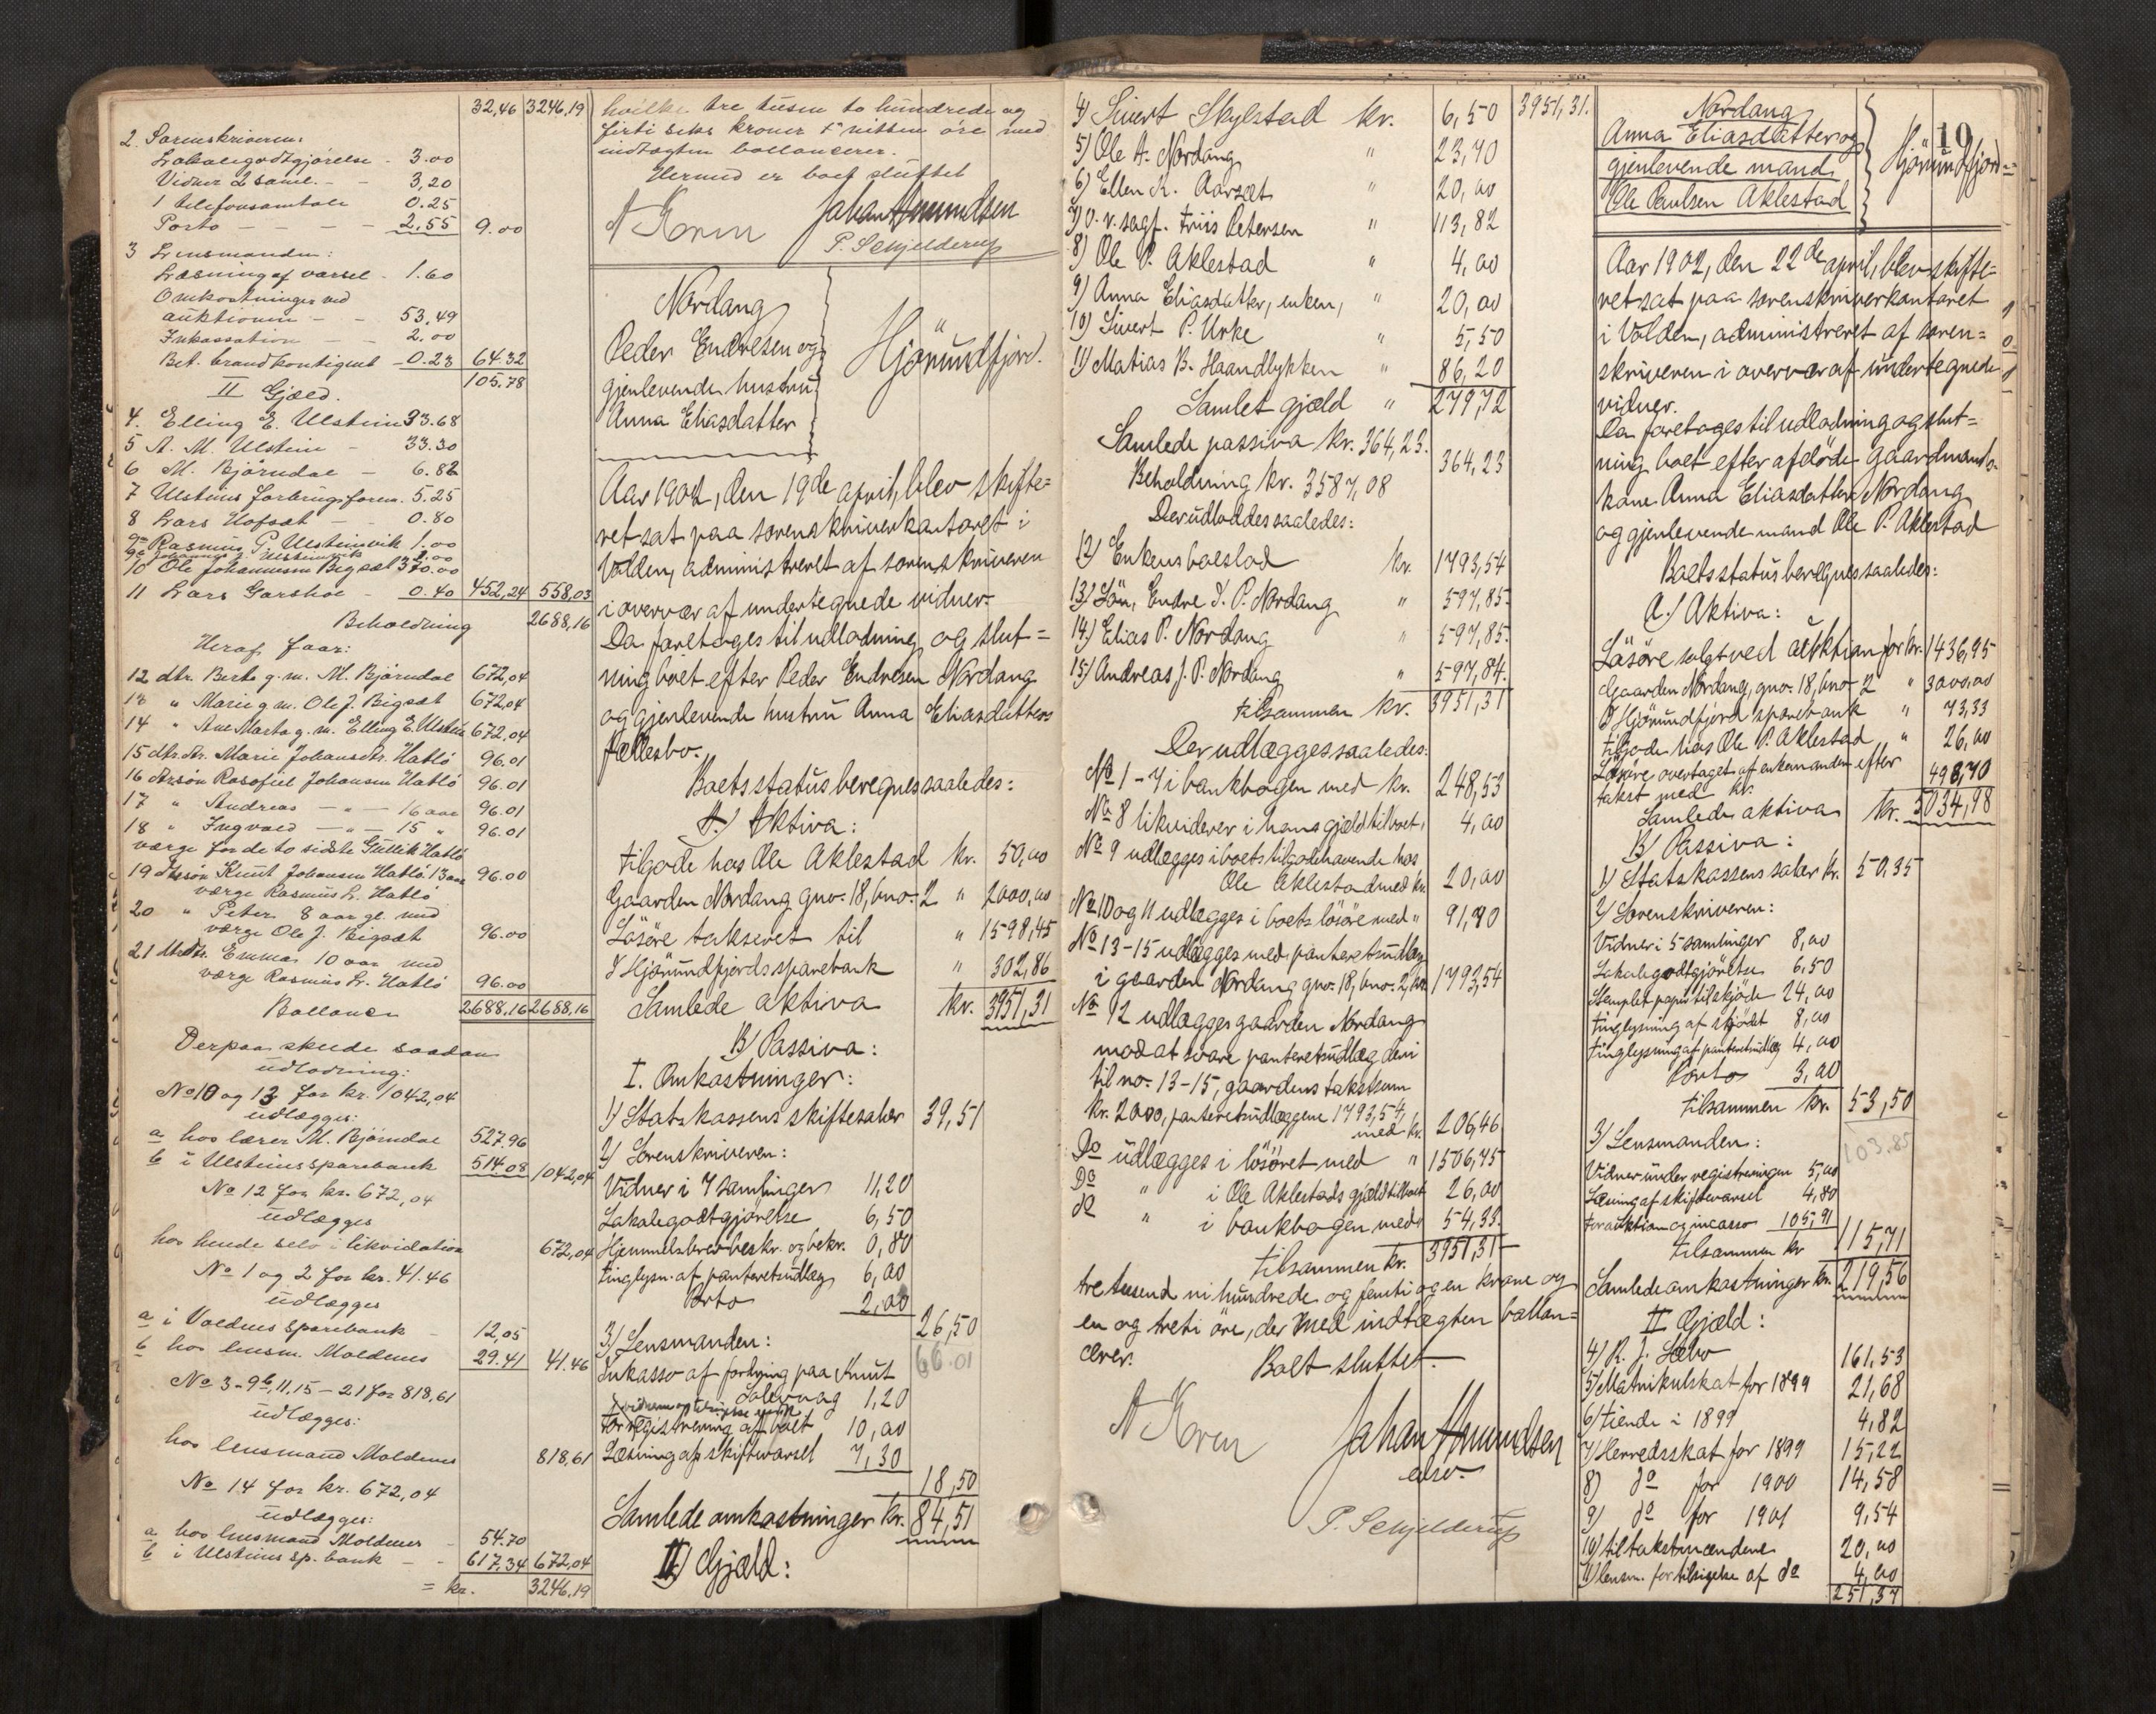 32,46 3246,19
2. Sorenskriveren:
Lokalegodtgjørelse - 3.00
Vidner 2 saml. - - 3,20
1 telefonsamtale 0.25
Porto - - - - 2.55 9.00
3 Lensmanden:
Læsning af varsel - 1.60
Omkostninger ved
auktionen - - 53.49
Inkassation - - 2.00
Bet. brandkontigent - 0.23 64.32
105.78
II Gjæld.
4. Elling E. Ulstein 33.68
5 A. M. Ulstein - 33.30
6 M. Bjørndal - 6.82
7 Ulsteins forbrugsforen. 5.25
8 Lars Hofsæt - - 0.80
9a Rasmus P. Ulsteinvik 1.00
9b Johannes J. Ulsteinvik 1.00
10 Ole Johannesen Bigsæt 370.00
11 Lars Garshol - 0.40 452,24 558,03
Beholdning 2688,16
Heraf faar:
12 dtr. Berte g. m. M. Bjørndal 672,04
13 " Marie g. m. Ole J. Bigsæt 672,04
14 " Ane Marta g. m. Elling E. Ulstein 672,04
15 dtr.dtr. Marie Johansdtr. Hatlø 96.01
16 dtrsøn Rasofiel Johansen Hatlø 96.01
17 " Andreas - " - 16 aar 96.01
18 " Ingvald - " - 15 " 96.01
værge for de to sidste Gullik Hatlø
19 dtrsøn Knut Johansen Hatlø 13 aar 96.00
værge Rasmus L. Hatlø
20 " Peter 8 aar gl. med
værge Ole J. Bigsæt 96.00
21 dtrdtr. Emma 10 aar med
værge Rasmus L. Hatlø 96.00
Ballancer 2688,16 2688,16
Derpaa skede saadan
udlodning:
No 10 og 13 for kr. 1042,04
udlægges:
a hos lærer M. Bjørndal 527.96
b i Ulsteins sparebank 514.08 1042,04
No 12 for kr. 672,04
udlægges
hos hende selv i likvidation 672,04
No 1 og 2 for kr. 41.46
udlægges
a i Voldens sparebank - 12,05
b hos lensm. Moldenes 29.41 41.46
No 3-9b, 11, 15-21 for 818,61
udlægges:
hos lensmand Moldenes 818,61
No 14 for kr. 672,04
udlægges:
a hos lensmand Moldenes - 54.70
b i Ulsteins sp. bank - - 617,34 672,04
= kr. 3246,19
hvilke tre tusen to hundrede og
firti seks kroner & nitten øre med
indtægten ballancerer.
Hermed er boet sluttet
N Koren Johan Amundsen
P. Schjelderup
Nordang
Peder Endresen og
gjenlevende hustru
Anna Eliasdatter
Hjørundfjord.
Aar 1902, den 19de april, blev skifte=
ret sat paa sorenskriverkontoret i
Volden, administreret af sorenskriveren
i overvær af undertegnede vidner.
Da foretoges til udlodning og slut=
ning boet efter Peder Endresen Nordang
og gjenlevende hustru Anna Eliasdatters
fællesbo.
Boets status beregnes saaledes:
A.) Aktiva:
tilgode hos Ole Aklestad kr. 50,00
Gaarden Nordang gno. 18, bno. 2 " 2000,00
Løsøre takseret til " 1598,45
I Hjørundfjords sparebank " 302,86
Samlede aktiva kr. 3951,31
B) Passiva:
I. Omkostninger:
1) Statskassens skiftesaler 39,51
2) Sorenskriveren:
Vidner i 7 samlinger 11,20
Lokalegodtgjørelse 6,50
Hjemmelsbrev beskr. og bekr. 0,80
tinglysn. af panteretsudlæg 6,00
Porto 2,00
26,50
66.01
3) Lensmanden:
Inkasso af fordring paa Knut
Solevaag 1,20
for registrering af boet 10,00
Læsning af skiftevarsel 7,30
18,50
Samlede omkostninger kr. 84,51
II) Gjæld:
4) Sivert Skylstad kr. 6,50 3951,31.
5) Ole A. Nordang " 23,70
6) Ellen K. Aarsæt " 20,00
7) O. r. sagf. Friis Petersen " 113,82
8) Ole P. Aklestad " 4,00
9) Anna Eliasdatter, enken, " 20,00
10) Sivert P. Urke " 5,50
11) Matias B. Haandlykken " 86,20
Samlet gjæld " 279,72
Samlede passiva kr. 364,23. 364,23
Beholdning kr. 3587,08
Der udloddes saaledes:
12) Enkens boeslod kr. 1793,54
13) Søn, Endre I. P. Nordang " 597,85.
14) Elias P. Nordang " 597,85.
15) Andreas J. P. Nordang " 597,84.
tilsammen kr. 3951,31
Der udlægges saaledes:
No 1-7 i bankbogen med kr. 248,53
No 8 likviderer i hans gjæld til boet, 4,00
No 9 udlægges i boets tilgodehavende hos
Ole Aklestad med kr. 20,00
No 10 og 11 udlægges i boets løsøre med " 91,70
No 13-15 udlægges med panteretsudlæg
i gaarden Nordang gno. 18, bno. 2, kr. 1793,54
No 12 udlægges gaarden Nordang
mod at svare panteretsudlæg deri
til no. 13-15, gaardens takstsum
kr. 2000, panteretsudlæggene 1793,54,
med kr. 206,46
Do udlægges i løsøret med " 1506,75
Do " i Ole Aklestads gjæld til boet 26,00
do " i bankbogen med 54,33.
tilsammen kr. 3951,31
tre tusend ni hundrede og femti og en krone og
en og treti øre, der med indtægten ballan=
cerer.
Boet sluttet.
N Koren Johan Amundsen
edsv.
P. Schjelderup
Nordang
Anna Eliasdatter og
gjenlevende mand
Ole Paulsen Aklestad
10
Hjørundfjord=
Aar 1902, den 22de april, blev skifte=
ret sat paa sorenskriverkontoret
i Volden, administreret af soren=
skriveren i overvær af undertegnede
vidner.
Da foretoges til udlodning og slut=
ning boet efter afdøde gaardmands=
kone Anna Eliasdatter Nordang
og gjenlevende mand Ole P. Aklestad
Boets status beregnes saaledes:
A.) Aktiva:
Løsøre solgt ved auktion for kr. 1436,95
Gaarden Nordang, gno. 18, bno. 2 " 3000,00
I Hjørundfjord sparebank " 73,33
tilgode hos Ole P. Aklestad " 26,00
Løsøre overtaget af enkemanden efter
takst med kr. 498,70
Samlede aktiva kr. 5034,98
B) Passiva:
1) Statskassens saler kr. 50,35
2) Sorenskriveren:
Vidner i 5 samlinger 8,00
Lokalegodtgjørelse 6,50
Stemplet papir til skjøde 24,00
tinglysning af skjødet 8,00
tinglysning af panteretsudlæg 4,00
Porto 3,00
tilsammen kr. 53,50
103.85
3) Lensmanden:
Vidner under registreringen 5,00
Læsning af skiftevarsel 4,80
for auktion og incasso 105,91
tilsammen kr 115,71
Samlede omkostninger kr. 219,56
II Gjæld:
4) R. J. Sæbø 161,53
5) Matrikulskat for 1899 21,68
6) tiende i 1899 4,82
7) Herredsskat for 1899 15,22
8) do for 1900 14,58
9) do for 1901 9,54
10) til takstmændene 20,00
11) lensm. for tilsigelse af do 4,00
251,37